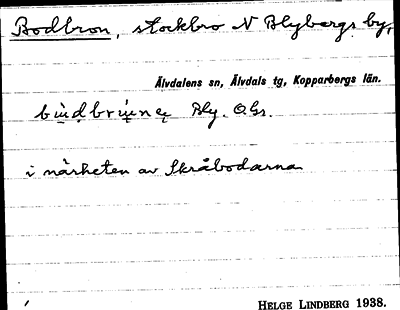 Bodbron, stockbro N Blybergs by,
Älvdalens sn, Älvdals tg, Kopparbergs län.
Bly. Obs.
i närheten av Skråbodarna
HELGE LINDBERG 1938.